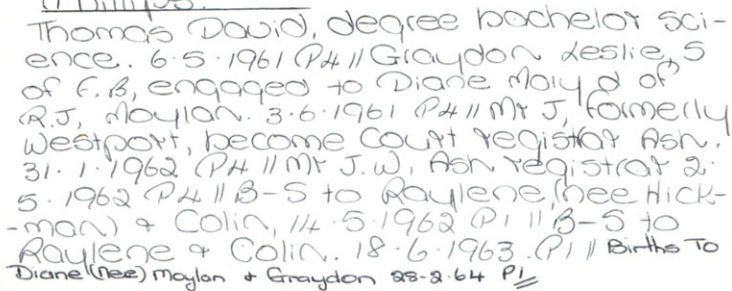 Thomas David, degree bachelor sci-
ence. 6.5.1961 P4 // Graydon Leslie, S
of F.B, engaged to Diane Mary d of
R.J, Moylan. 3.6.1961 P4 // Mr J, formerly
Westport, become Court registrar Ash.
31.1.1962 P4 // Mr J.W, Ash registrar 2.
5.1962 P4 // B-S to Raylene, (nee Hick-
-man) & Colin, 14.5.1962 P1 // B-S to
Raylene & Colin. 18.6.1963. P1 // Births To
Diane (nee) Moylan & Graydon 28-2.64 P1